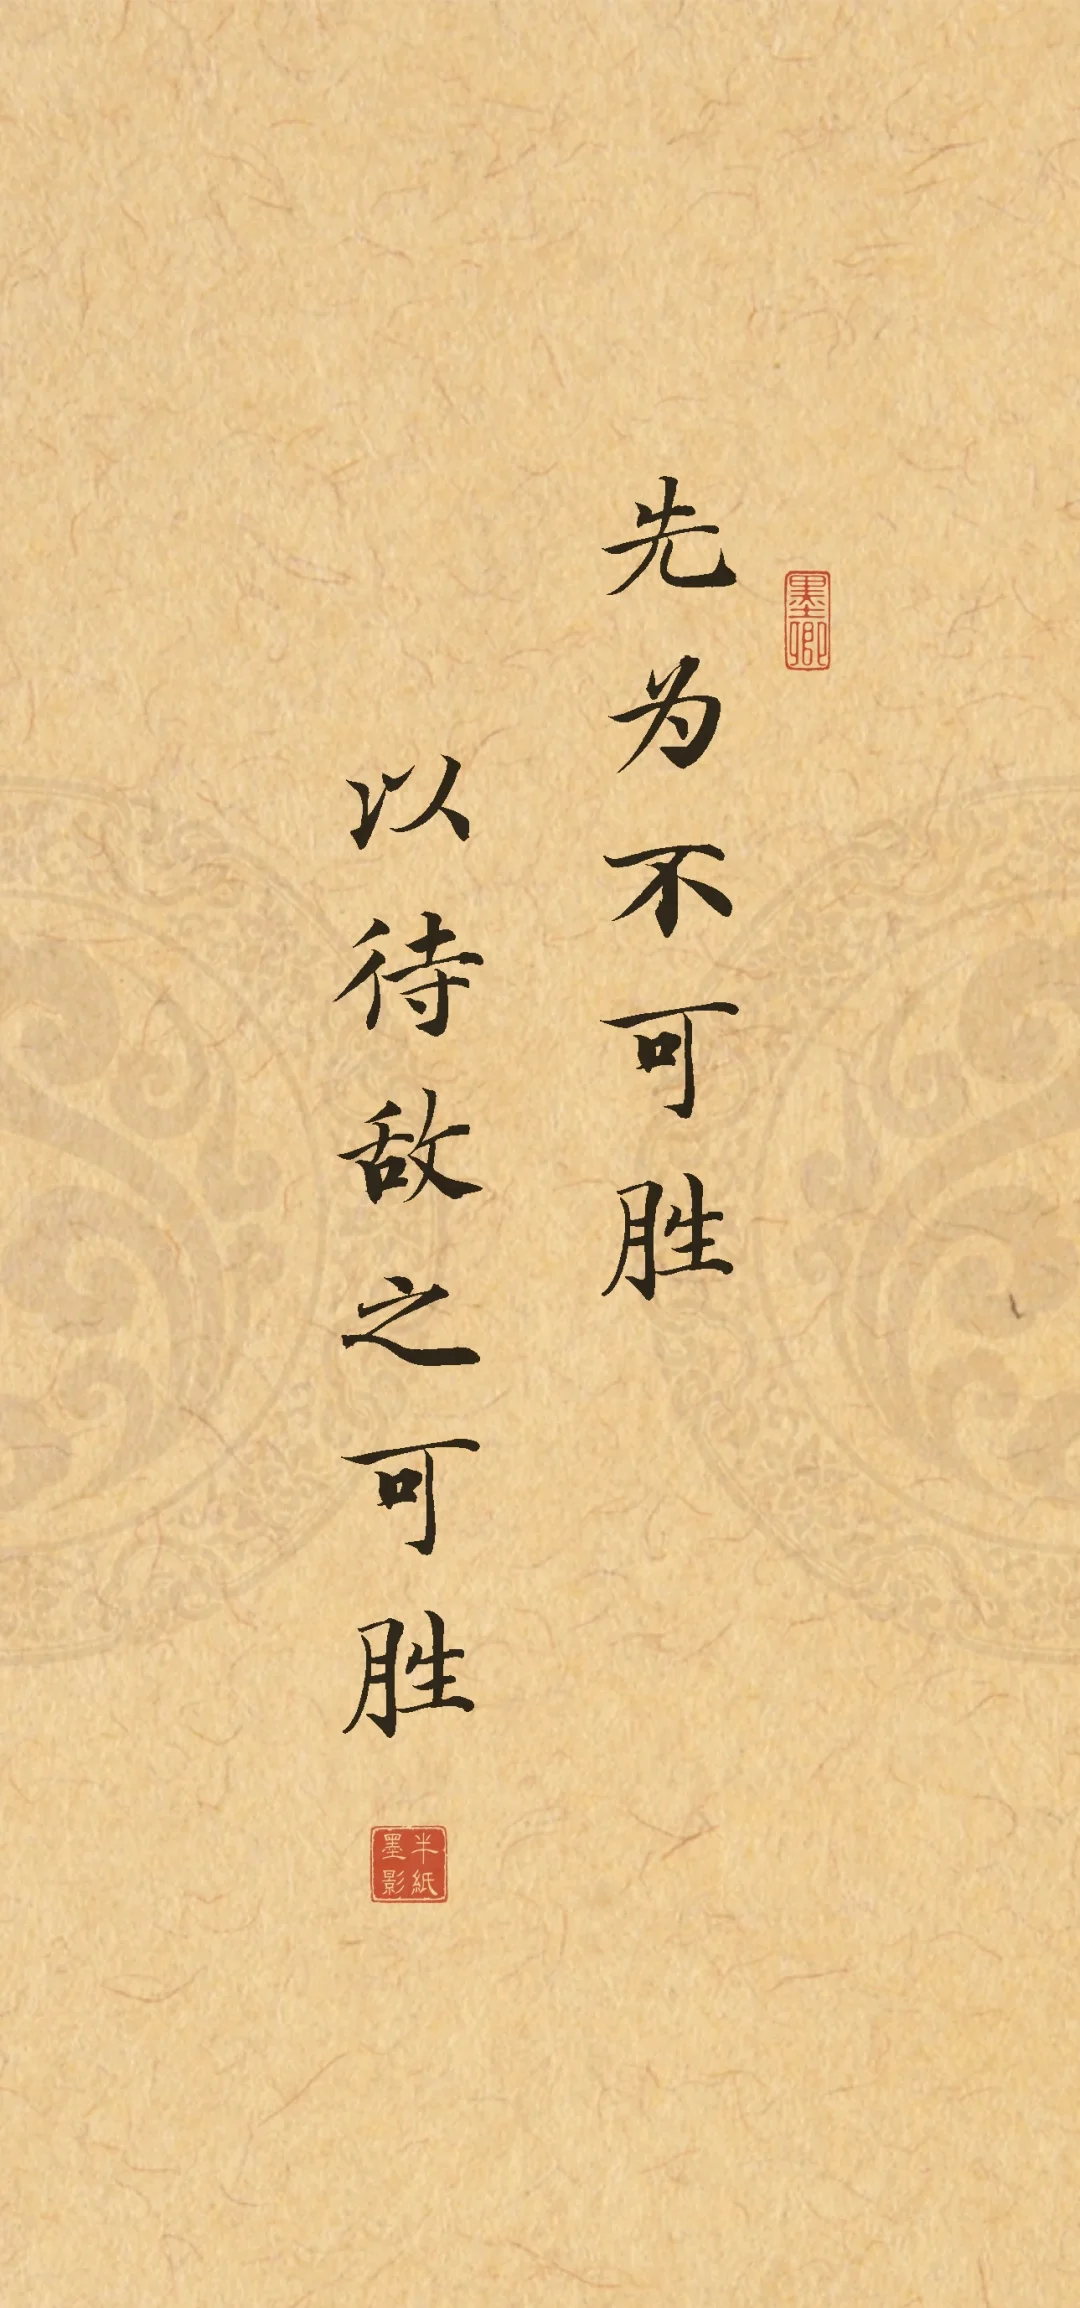 墨卿
先为不可胜
以待敌之可胜
半紙
墨影